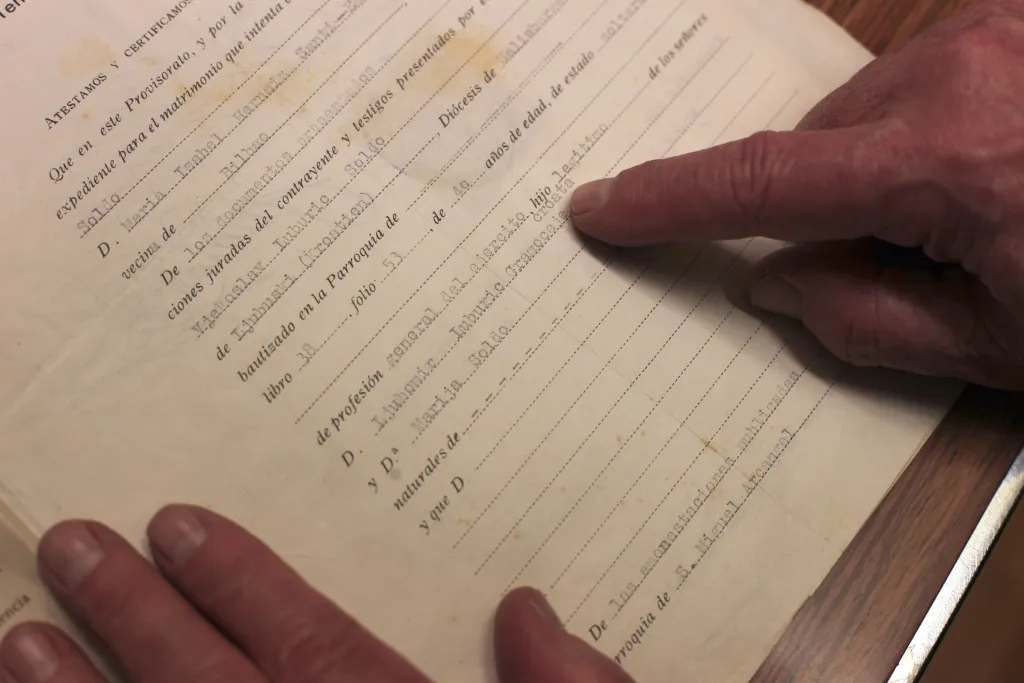 ATESTAMOS Y CERTIFICAMOS
Que en este Provisorato, y por la
expediente para el matrimonio que intenta
Soldo
D. Maria Isabel Hernaiz Santi
vecina de Bilbao
De los documentos presentados
ciones juradas del contrayente y testigos presentados por
Vjekoslav Luburic Soldo, Diócesis de
de Ljubuski (Croatien)
bautizado en la Parroquia de
libro 18, folio 53, de 40 años de edad, de estado soltero
de profesión general del ejercito hijo legitimo de los señores
croata
D. Ljubomir Luburic Gramoca
y D.ª Marija Soldo
naturales de
y que D
De las amonestaciones publicadas
rroquia de S. Miguel Arcangel
encia